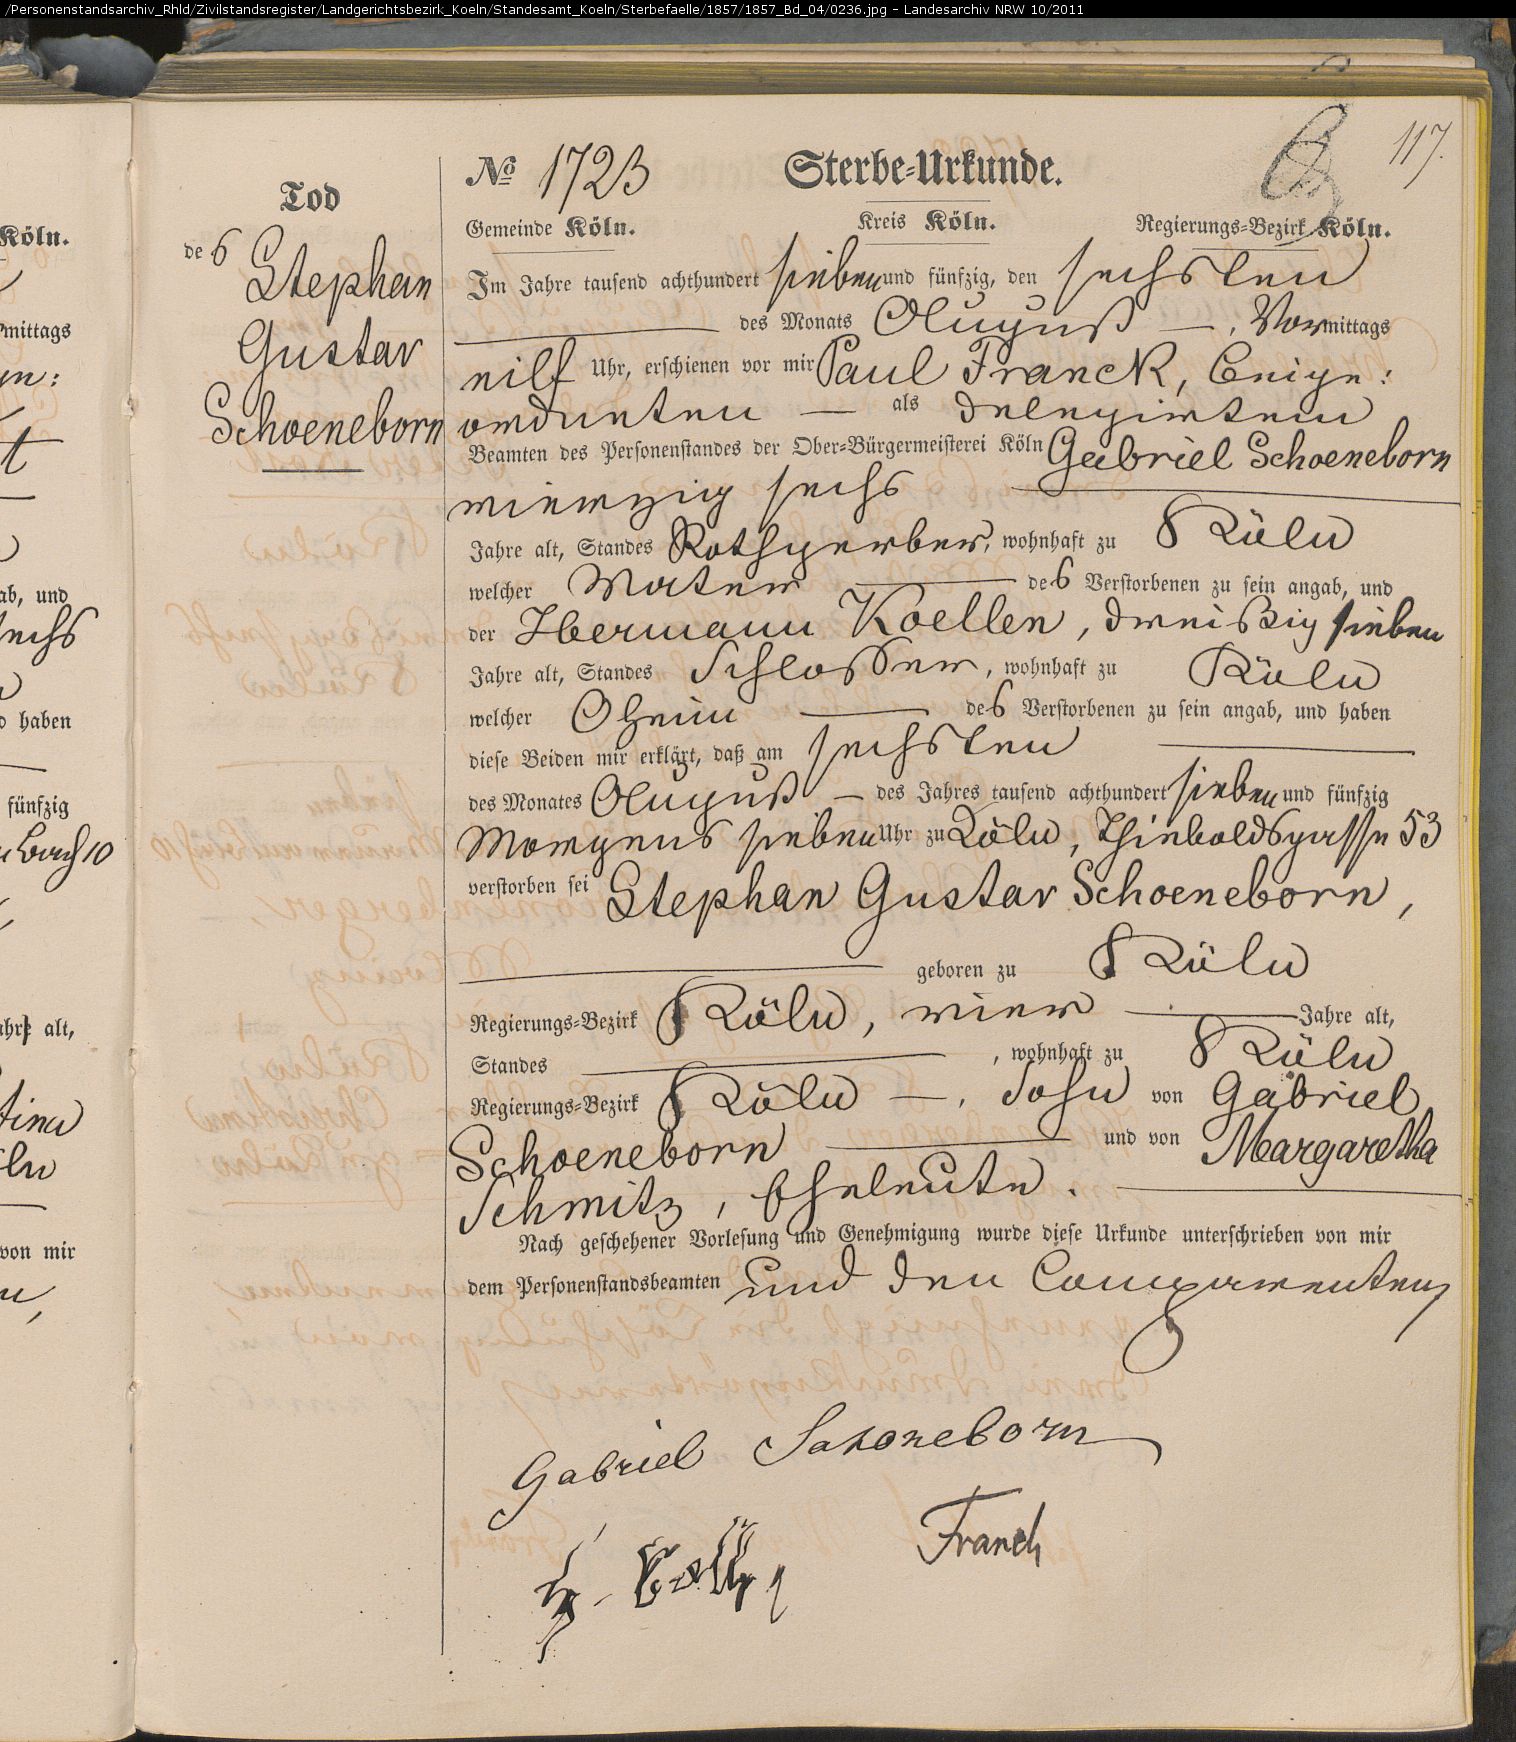 /Personenstandsarchiv_Rhld/Zivilstandsregister/Landgerichtsbezirk_Koeln/Standesamt_Koeln/Sterbefaelle/1857/1857_Bd_04/0236.jpg - Landesarchiv NRW 10/2011
117.
No 1723 Sterbe-Urkunde.
Gemeinde Köln. Kreis Köln. Regierungs-Bezirk Köln.
Tod
des
Stephan
Gustav
Schoeneborn
Im Jahre tausend achthundert sieben und fünfzig, den sechsten
des Monats August, Vormittags
eilf Uhr, erschienen vor mir Paul Franck, Beige:
ordneten als delegirtem
Beamten des Personenstandes der Ober-Bürgermeisterei Köln Gabriel Schoeneborn
vierzig sechs
Jahre alt, Standes Rothgerber, wohnhaft zu Köln
welcher Vater des Verstorbenen zu sein angab, und
der Hermann Koellen, dreißig sieben
Jahre alt, Standes Schlosser, wohnhaft zu Köln
welcher Oheim des Verstorbenen zu sein angab, und haben
diese Beiden mir erklärt, daß am sechsten
des Monates August des Jahres tausend achthundert sieben und fünfzig
Morgens sieben Uhr zu Köln, Thieboldsgasse 53
verstorben sei Stephan Gustav Schoeneborn,
geboren zu Köln
Regierungs-Bezirk Köln, vier Jahre alt,
Standes , wohnhaft zu Köln
Regierungs-Bezirk Köln, Sohn von Gabriel
Schoeneborn und von Margaretha
Schmitz, Eheleute.
Nach geschehener Vorlesung und Genehmigung wurde diese Urkunde unterschrieben von mir
dem Personenstandsbeamten und den Comparenten
Gabriel Schoneborn
Franck
Köln.
mittags
ab, und
sechs
haben
fünfzig
bach 10
alt,
von mir